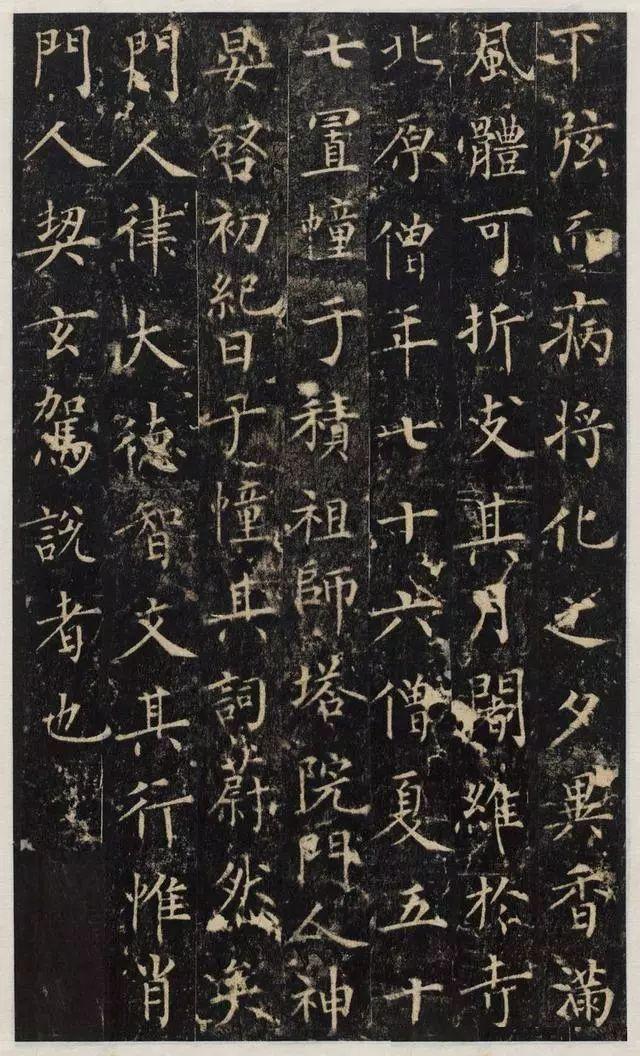 下弦而病将化之夕異香滿
風體可折支其月闍維於寺
北原僧年七十六僧夏五十
七置幢于積祖師塔院門人神
晏啓初紀日于幢其詞蔚然矣
門人律大德智文其行惟肖
門人契玄駕說者也